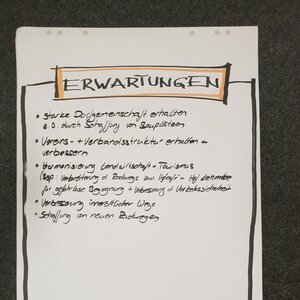 ERWARTUNGEN
• Starke Dorfgemeinschaft erhalten
z.B. durch Schaffung von Bauplätzen
• Vereins- + Verbandsstruktur erhalten +
verbessern
• Harmonisierung Landwirtschaft + Tourismus
(Bsp.: Verbreiterung d. Radwegs zur +
für gefahrlose Begegnung + Verbesserung d. Verkehrssicherheit
• Verbesserung innerörtlicher Wege
• Schaffung von neuen Radwegen